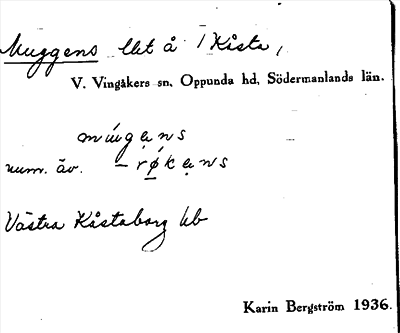 Muggens llet å 1 Kåsta,
V. Vingåkers sn, Oppunda hd, Södermanlands län.
múgans
num. äv. – røkans
Västra Kåstaborg lb
Karin Bergström 1936.